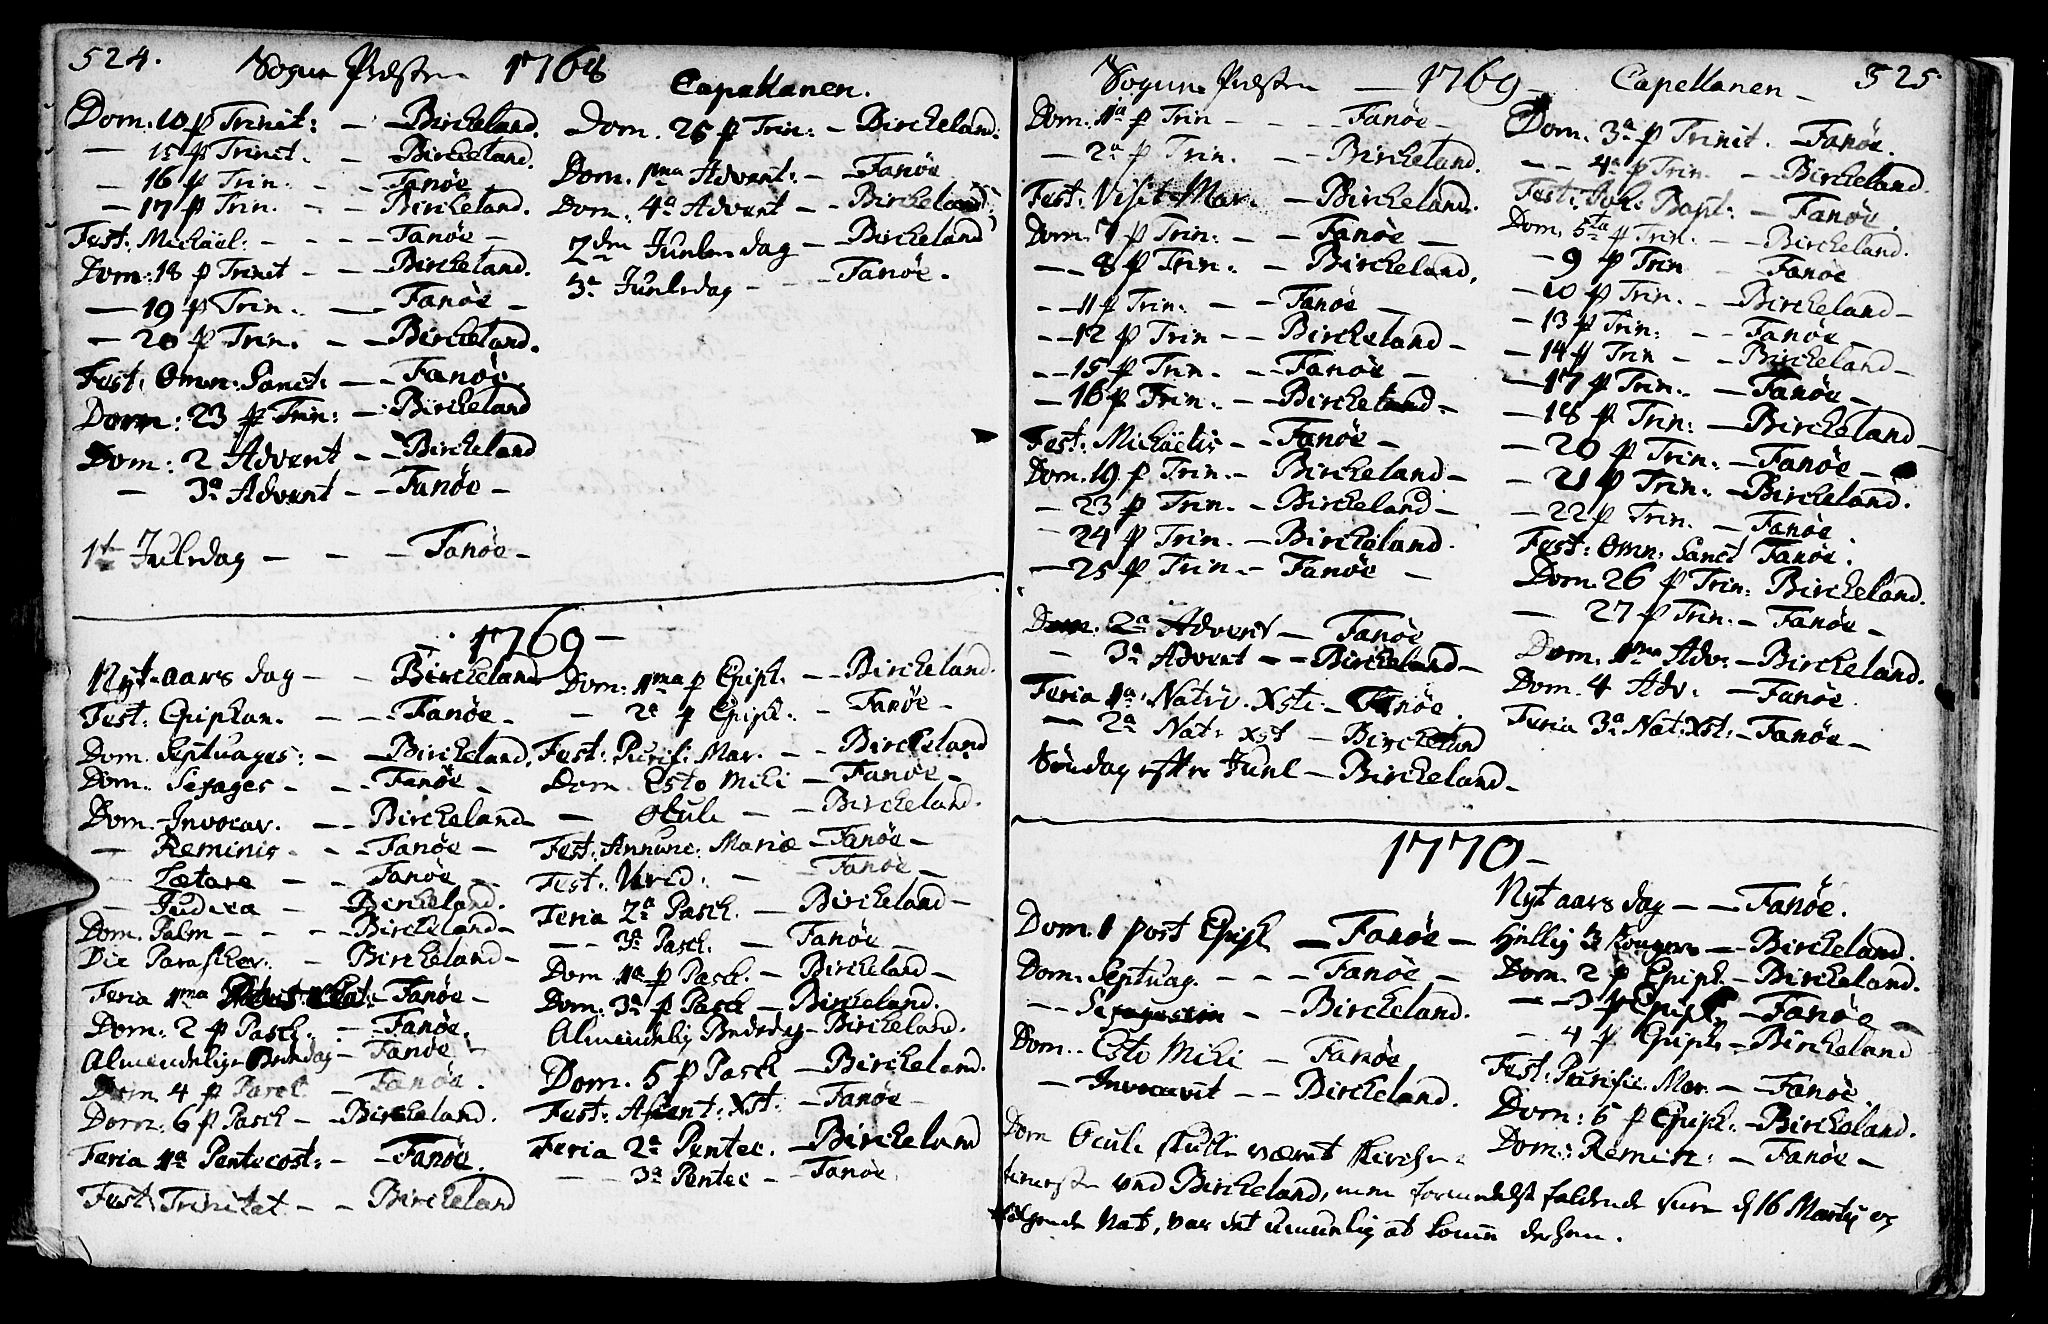 524.
Sogne Præsten 1768
Capellanen.
Dom. 10 p Trinit: - - Birckeland.
- 15 p Trinit. - - Birckeland.
- 16 p Trin. - - Fanöe
- 17 p Trin. - - Birckeland.
Fest: Michael: - - - - Fanöe -
Dom: 18 p Trinit - - - Birckeland.
- 19 p Trin. - Fanöe -
- 20 p Trin. - - Birckeland.
Fest: Omn: Sanct: - - Fanöe.
Dom: 23 p Trin: - Birckeland
Dom: 2 Advent - - Birckeland
- 3a Advent - - Fanöe -
1te Juledag - - - Fanöe -
Dom. 25 p Trin: - Birckeland.
Dom. 1ma Advent: - - Fanöe
Dom. 4a Advent - - Birckeland.
2den Juule dag - - Birckeland
3e Juuledag - - - Fanöe -
- 1769 -
Nyt-aars dag - - Birckeland
Fest: Epiphan. - - - Fanöe -
Dom. Septuages: - - Birckeland.
Dom: Sexages - - - Fanöe -
Dom. Invocav. - - Birckeland -
- Reminis - - - Fanöe -
- Lætare - - Fanöe -
- Judica - - Birckeland.
Dom. Palm - - - - Birckeland -
Die Paraschev. - Birckeland -
Feria 1ma - Fanöe -
Dom: 2 p Pasch. - - Fanöe.
Almendelig Beededag - Fanöe -
Dom 4 p Pasch - Fanöe.
Dom: 6 p Pasch - Birckeland.
Feria 1a Pentecost: - - Fanöe.
Fest: Trinitat - - Birckeland
Dom: 1ma p Epiph. - - Birckeland.
- 2a p Epiph. - Fanöe -
Fest: Purif: Mar. - - Birckeland
Dom. Esto Mihi - Fanöe -
- Oculi - - Birckeland.
Fest: Annunc: Mariæ - Fanöe -
Fest: Virid: - - Fanöe -
Feria 2a Pasch. - Birckeland -
- - 3a Pasch. - Fanöe -
Dom 1a p Pasch: - Birckeland -
Dom: 3a p Pasch - Birckeland.
Almindelig Beededag - Birckeland.
Dom. 5 p Pasch - Birckeland.
Fest: Ascent: Xsti: - Fanöe -
Feria 2a Pentec. - Birckeland
- - 3a Pentec - - Fanöe.
Sogne Præsten - 1769 - Capellanen - 525
Dom: 1a p Trin - - - - Fanöe -
- 2a p Trin. - - Birckeland.
Fest: Visit Mar. - Birckeland.
Dom. 7 p Trin: - - Fanöe -
- - 8 p Trin: - Birckeland.
- - 11 p Trin: - - Fanöe -
- - 12 p Trin - - Birckeland -
- - 15 p Trin. - - Fanöe -
- 16 p Trin. - - Birckeland -
Fest: Michaëlis - - Fanöe -
Dom. 19. p Trin. - Birckeland -
- 23 p Trin. - Birckeland -
- 24 p Trin. - Birckeland.
- 25 p Trin. - Fanöe -
Dom. 2a Advent - Fanöe -
- 3a Advent - - Birckeland -
Feria 1a: Nativ. Xsti: - Fanöe.
- 2a Nat: Xst - Birckeland
Söndag efter Juul - Birckeland -
Dom. 3a p Trinit. - Fanöe.
- - 4a p Trin. - - Birckeland.
Fest: Joh: Bapt: - Fanöe.
Dom. 5ta p Trin. - - Birckeland.
- 9 p Trin - Fanöe
- 10 p Trin. - - Birckeland -
- 13 p Trin: - - Fanöe -
- 14 p Trin - - Birckeland -
- 17 p Trin. - Fanöe -
- 18 p Trin: - Birckeland -
- 20 p Trin: - Fanöe -
- 21 p Trin: - Birckeland.
- 22 p Trin. - Fanöe.
Fest: Omn: Sanct Fanöe.
Dom. 26 p Trin: Birckeland.
- 27 p Trin: - Fanöe -
Dom. 1ma Adv: - Birckeland.
Dom. 4 Adv: - Fanöe.
Feria 3a Nat: Xsti: - Fanöe -
1770 -
Dom. 1 post Epiph - Fanöe -
Dom. Septuag. - - - Fanöe -
- - - Birckeland.
Dom. Esto Mihi - Fanöe
- Invocavit - - Birckeland.
Nyt aars dag - - Fanöe.
Hellig 3 Konger - Birckeland.
Dom. 2 p Epiph. - Birckeland.
- - 3 p Epiph. - Fanöe -
- 4 p Epiph. - Birckeland
Fest: Purific. Mar. - Fanöe.
Dom: 5 p Epiph. - Birckeland.
Dom: Remin: - Fanöe -
Dom Oculi skulle været Kirche
tieneste ved Birckeland, men formedelst faldende Snee d 16 Martij og
følgende Nat, var det umuelig at komme derhen.